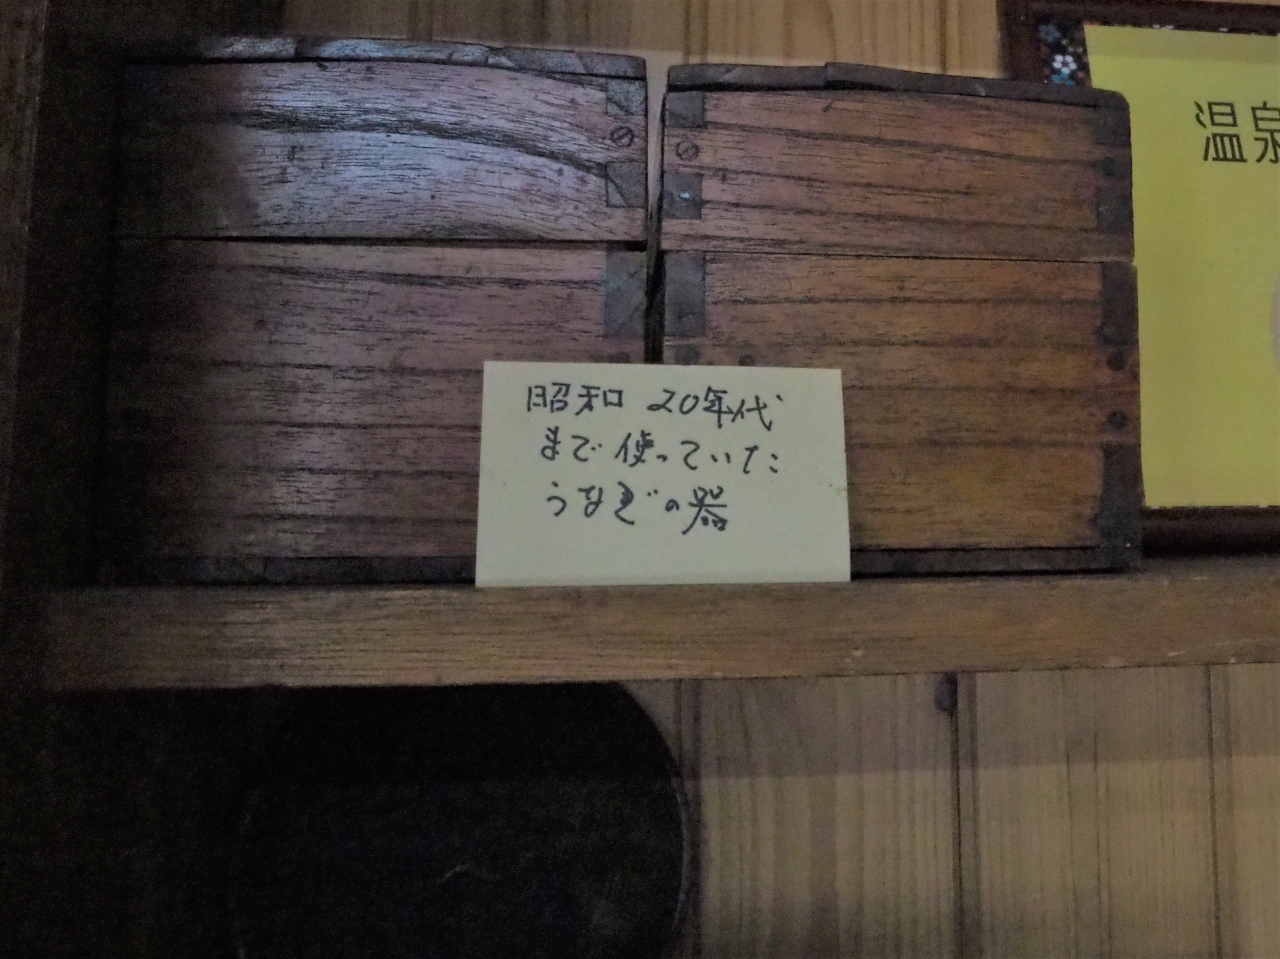 昭和 20年代
まで使っていた
うなぎの器
温泉